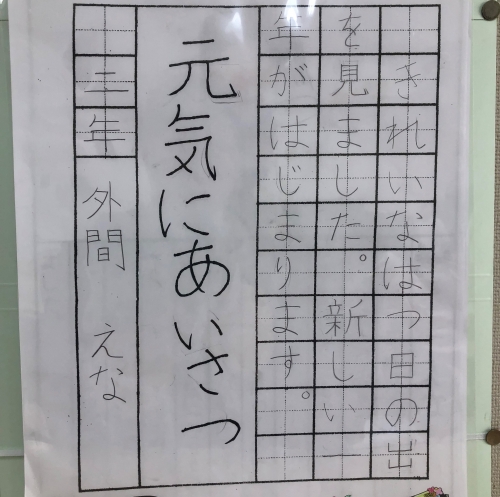 きれいなはつ日の出
を見ました。新しい一
年がはじまります。
元気にあいさつ
二年 外間 えな